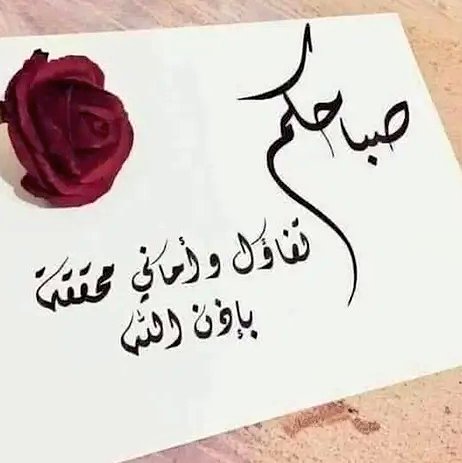 صباحكم
تفاؤل وأماني محققة
بإذن الله